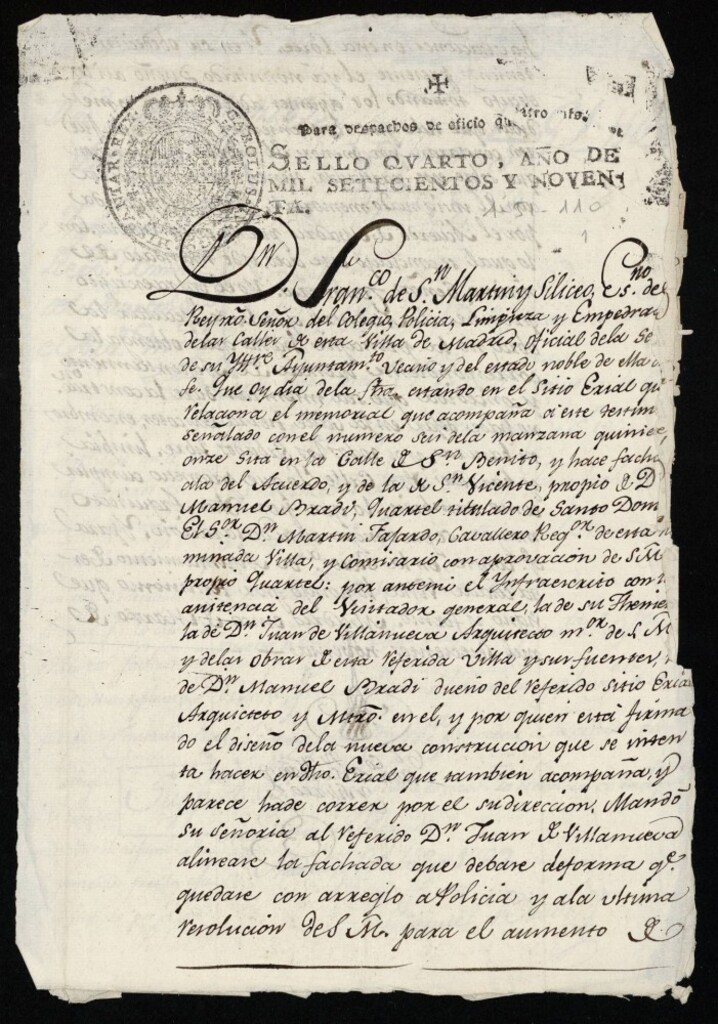 ✠
Para despachos de oficio qu atro mrs.
SELLO QVARTO, AÑO DE
MIL SETECIENTOS Y NOVEN-
TA.
CAROLUS HISPANIAR. REX
Dn. Franco. de Sn. Martin y Siliceo, Esno. de
Rey nro. Señor del Colegio, Policia, Limpieza y Empedra
delas Calles de esta Villa de Madrid, oficial dela Se
de su Yttre. Ayuntamto. Vecino y del estado noble de ella
fe. Que oy dia dela fha. estando en el Sitio Erial qe
relaciona el memorial que acompaña a este testim
señalado con el numero seis dela manzana quinie,
once sita en la Calle de Sn. Benito, y hace facha
ala del Acuerdo, y de la de Sn. Vicente, propio de D
Manuel Bradi, Quartel titulado de Santo Dom
El Sor. Dn. Martin Fajardo, Cavallero Regor. de esta n
minada Villa, y Comisario con aprovacion de S.M
propio Quartel: por antemi el Ynfraescrito con
asistencia del Visitador general, la de su Theni
la de Dn. Juan de Villanueva Arquitecto mor. de S.M
y delas obras de esta referida Villa y sus fuentes,
de Dn. Manuel Bradi dueño del referido sitio Eria
Arquitecto y Mtro. en el, y por quien está firma
do el diseño dela nueva construccion que se inten
ta hacer en dho. Erial que tambien acompaña, y
parece hade correr por el su direccion. Mandó
su señoria al referido Dn. Juan de Villanueva
alinease la fachada que debase deforma qe.
quedase con arreglo a Policia y ala ultima
resolucion de S.M. para el aumento de